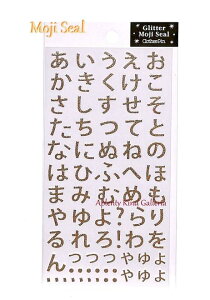 Moji Seal
Glitter
Moji Seal
ClothesPin
あいうえお
かきくけこ
さしすせそ
たちつてと
なにぬねの
はひふへほ
まみむめも
やゆよ?らり
るれろ!わを
ん
ゃゅょ
ゃゅょ